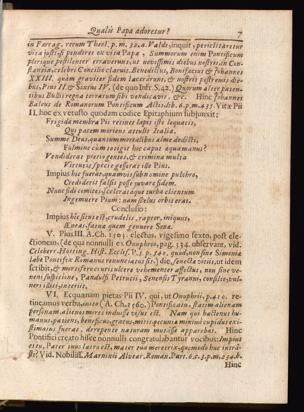 Qualis Papa adoretur? 7
in Farrag. rerum Theol. p. m. 32. a. Valde, inquit, periclitaretur
vita justi, si penderet ex vita Papæ. Summorum enim Pontificum
plerique pestilenter errraverunt, ut novissimis diebus nostris, in Con-
stantia, celebri Concilio claruit, Benedictus, Bonifacius & Johannes
XXIII. quam graviter fidem læserunt, & nostris postremis die-
bus, Pius II. & Sixtus IV. (de quo Infr. §. 42.) Quorum alter paten-
tibus Bullis regna terrarum sibi vendicavit, &c. Hinc Johannes
Baleus de Romanorum Pontificum Actis. lib. 6. p. m. 435. Vitæ Pii
II, hoc ex vetusto quodam codice Epitaphium subjunxit:
Frigida membra Pii retinet lapis iste loquacis,
Qui pacem moriens attulit Italiæ.
Summe Deus, quantum mortalibus alme dedisti,
Fulmine cùm tetigit hic caput æquamanus?
Vendiderat pretio gentes, & crimina multa
Virtutis specie gesserat iste Pius.
Impius hic fueras, quamvis sub nomine pulchro,
Credideris falsis posse juvare fidem.
Nunc sidi comites, scelerataque turba clientum
Ingemuere Pium: nam scelus orbis eras.
Conclusio:
Impius hîc situs est, crudelis, raptor, iniquus,
Errat fatua quem genuere Sena.
V. Pius III. A. Ch. 1503. electus, vigesimo sexto, post ele-
ctionem, (de qua nonnulli ex Onuphrio, pag. 334. observant, vid.
Celeberr. Hotting. Hist. Eccles. P. 3. p. 540. quod, non sine Simonia
labe Pontifex Romanus renunciatus sit,) die, senecta vitiis, ut idem
scribit, & morsi ferve cruris ulcere vehementer affectus, non sine ve-
neni suspicione, Pandulfi Petrucii, Senensis Tyranni, consilio, vul-
neri illiti, interiit.
VI. Equarum pietas Pii IV. qui, ut Onuphrii, p. 410. re-
tineamus verba, uno (A. Ch. 1565.) Pontificatu, statim alienam
personam, alienos mores induisse visus est. Nam qui hactenus hu-
manus, patiens, beneficus, gratus, mitis, pecuniæ minimè cupidus exi-
stimatus fuerat, derepente naturam mutasse apparebat. Hinc
Pontifici creato hisce nonnulli congratulabantur vocibus: Impius
est tu, Pater tuus latro est, mater tua meretrix, quomodo huc intra-
ste? Vid. Nobiliss. Marninii Alvear. Roman. Part. 6. c. 3. p. m. 234. b.
Hinc